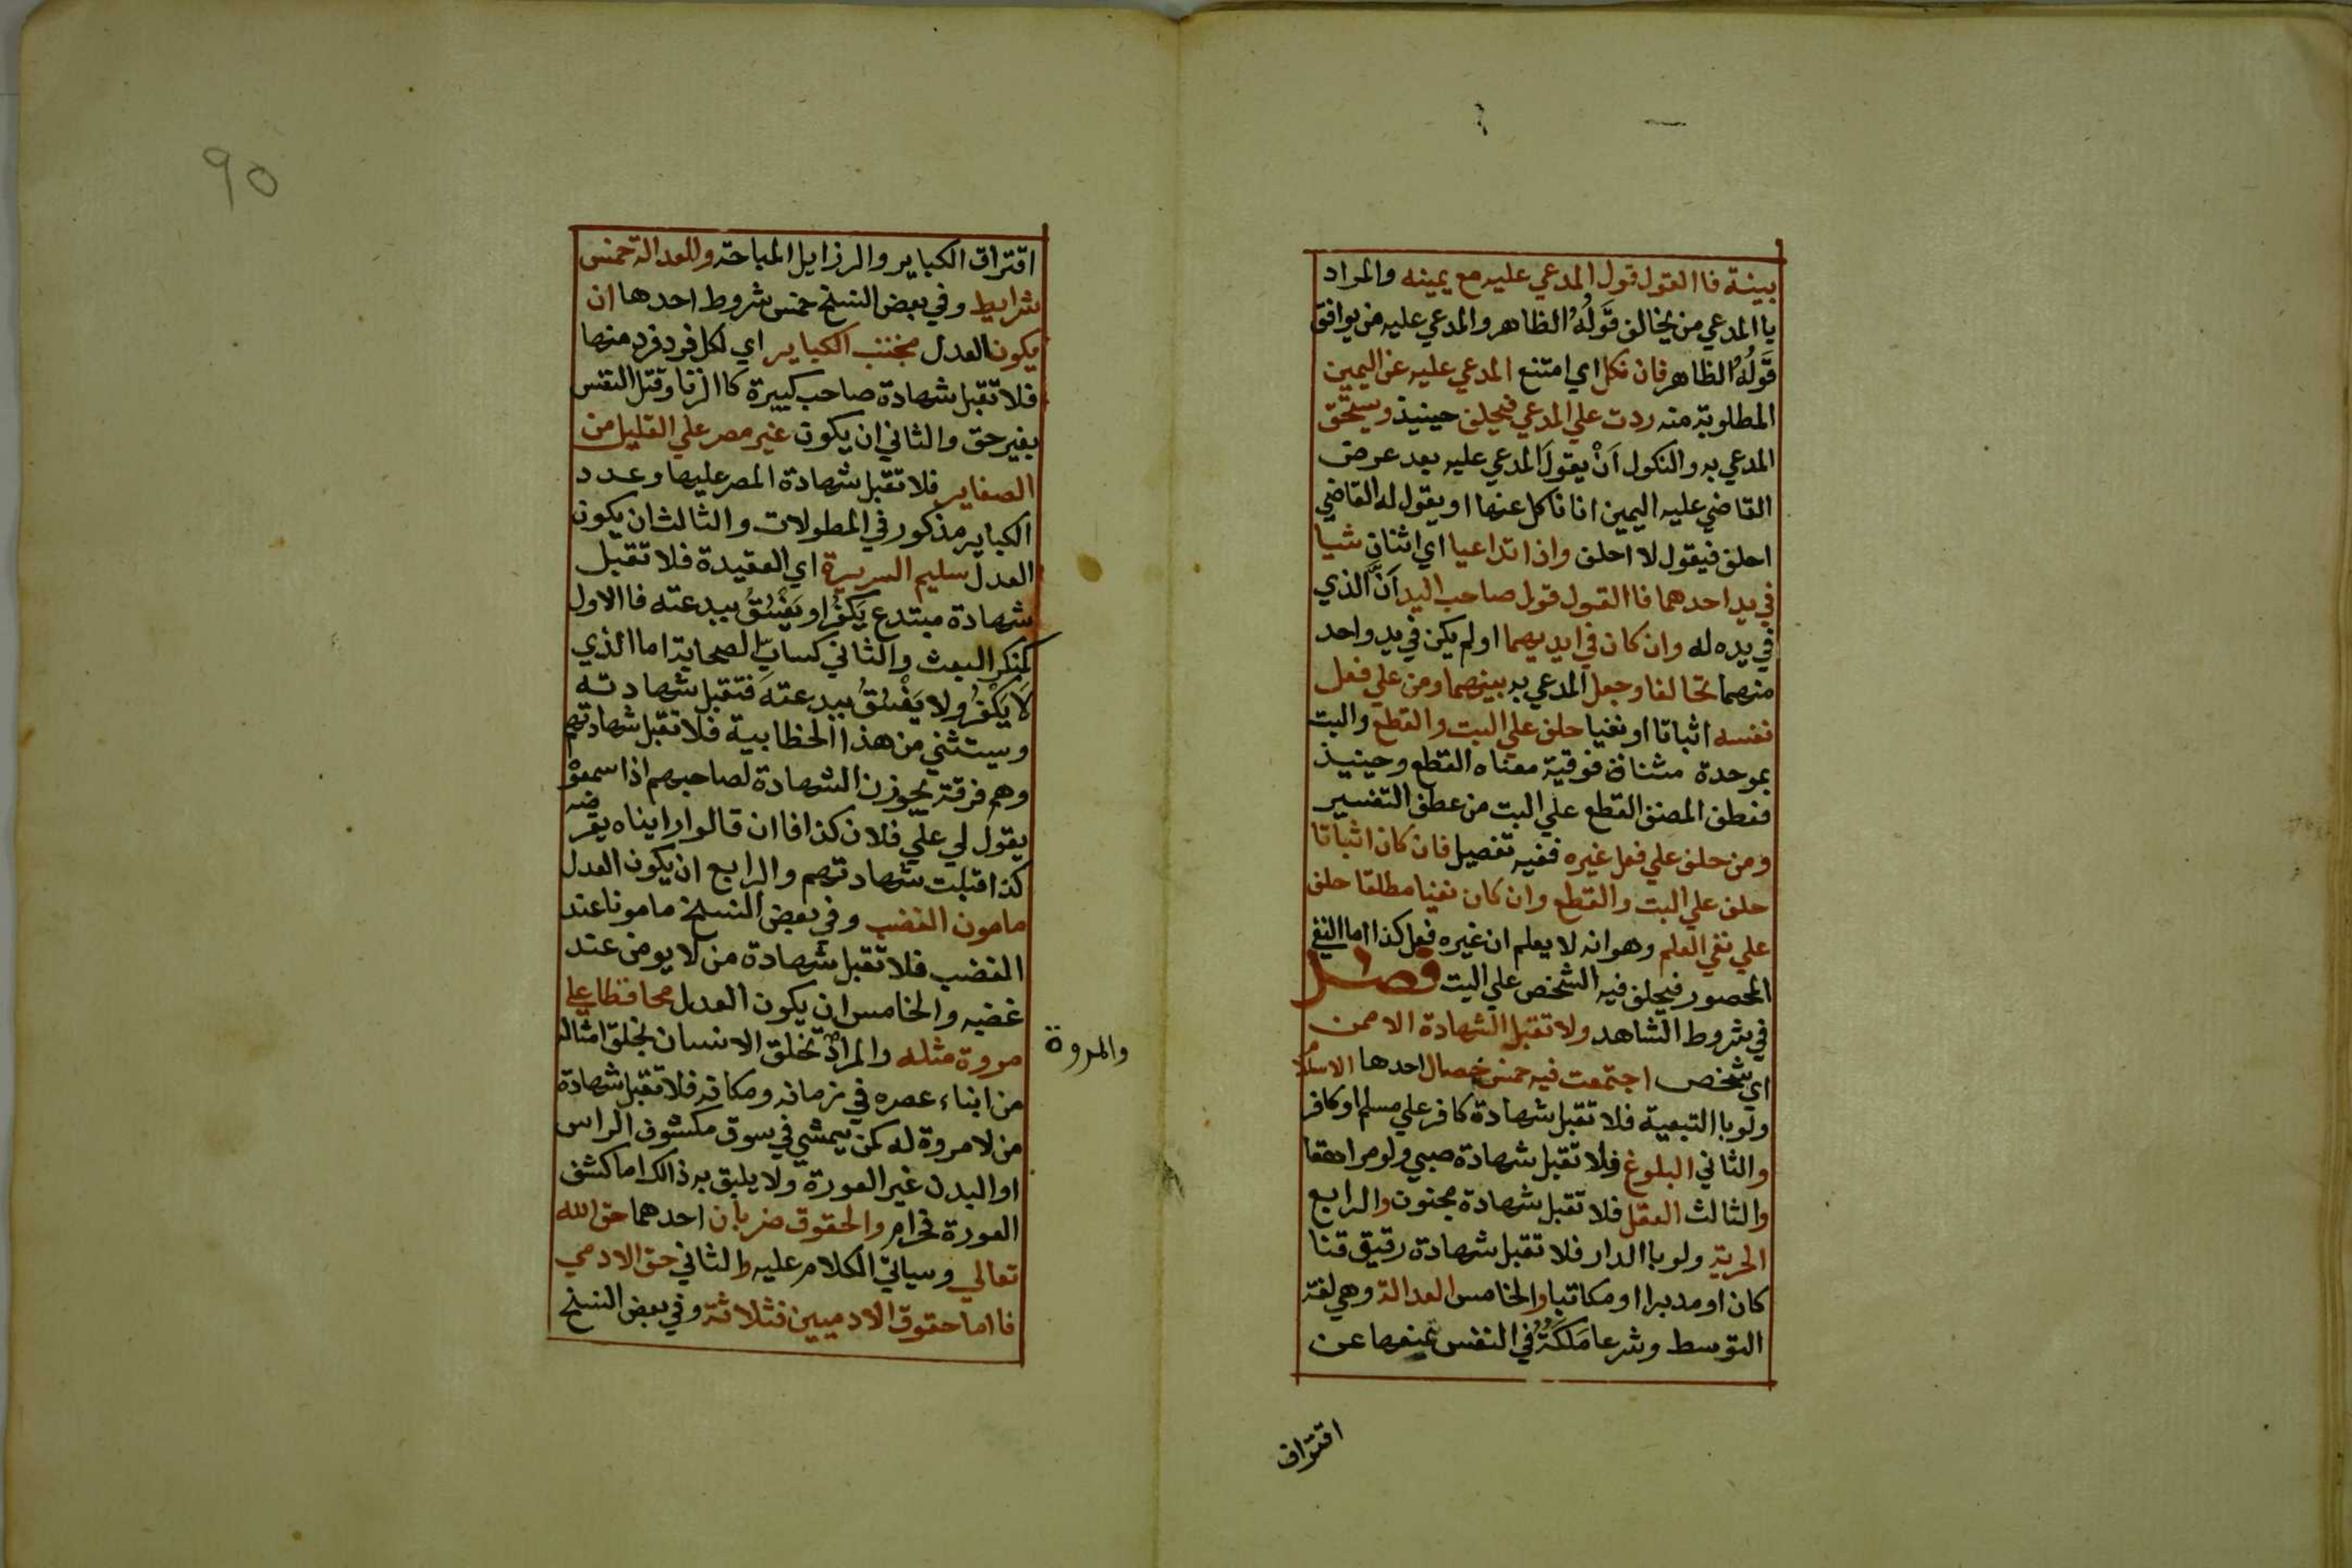 بينة فا القول قول المدعي عليه مع يمينه والمراد
يا المدعي من يخالف قَولُهُ الظاهر والمدعي عليه من يوافق
قَولُهُ الظاهر فان نكل اي امتنع المدعي عليه عن اليمين
المطلوبة منه ردت علي المدعي فيحلف حينيذ ويستحق
المدعي به والنكول اَنْ يقولَ المدعي عليه بعد عرض
القاضي عليه اليمين انا ناكل عنها او يقول له القاضي
احلف فيقول لا احلف واذا تداعيا اي اثنان شيا
في يد احدهما فا القول قول صاحب اليد اَنَّ الذي
في يده له وان كان في ايديهما او لم يكن في يد واحد
منهما تحالفا وجعل المدعي به بينهما ومن علي فعل
نفسه اثباتا او نفيا حلف علي البت والقطع والبت
بموحدة مثناة فوقية معناه القطع وحينيذ
فعطف المصنف القطع علي البت من عطف التفسير
ومن حلف علي فعل غيره ففيه تفصيل فان كان اثباتا
حلف علي البت والقطع وان كان نفيا مطلقا حلف
علي نفي العلم وهو انه لا يعلم ان غيره فعل كذا اما النفي
المحصور فيحلف فيه الشخص علي البت فصل
في شروط الشاهد ولا تقبل الشهادة الا ممن
اي شخص اجتمعت فيه خمس خصال احدها الاسلام
ولو با التبعية فلا تقبل شهادة كافر علي مسلم او كافر
والثاني البلوغ فلا تقبل شهادة صبي ولو مراهقا
والثالث العقل فلا تقبل شهادة مجنون والرابع
الحرية ولو با الدار فلا تقبل شهادة رقيق قنا
كان او مدبرا او مكاتبا والخامس العدالة وهي لغة
التوسط وشرعا مَلَكَةٌ في النفس تمنعها عن
اقتراف
90
اقتراف الكباير والرزايل المباحة وللعدالة خمس
شرايط وفي بعض النسخ خمس شروط احدها ان
يكون العدل مجتنب الكباير اي لكل فرد فرد منها
فلا تقبل شهادة صاحب كبيرة كا الزنا وقتل النفس
بغير حق والثاني ان يكون غير مصر علي القليل من
الصغاير فلا تقبل شهادة المصر عليها وعدد
الكباير مذكور في المطولات والثالث ان يكون
العدل سليم السريرة اي العقيدة فلا تقبل
شهادة مبتدع يَكفُرُ او يَفْسُقُ ببدعته فا الاول
كمنكر البعث والثاني كسابّ الصحابة اما الذي
لَا يَكْفُرُ ولا يَفْسُقُ ببدعته فتقبل شهادته
ويستثني من هذا الخطابية فلا تقبل شهادتهم
وهم فرقة يجوزن الشهادة لصاحبهم اذا سمعوْ
يقول لي علي فلان كذا فا ان قالوا رايناه يقرضه
كذا قبلت شهادتهم والرابع ان يكون العدل
مامون الغضب وفي بعض النسخ مامونا عند
الغضب فلا تقبل شهادة من لا يومن عند
غضبه والخامس ان يكون العدل محافظا علي
مروة مثله والمراد تخلق الانسان بخلق امثاله
والمروة
من ابناء عصره في زمانه ومكانه فلا تقبل شهادة
من لا مروة له كمن يمشي في سوق مكشوف الراس
او البدن غير العورة ولا يليق به ذالك اما كشف
العورة فحرام والحقوق ضربان احدهما حق الله
تعالي وسياتي الكلام عليه والثاني حق الادمي
فا اما حقوق الادميين فثلاثة وفي بعض النسخ